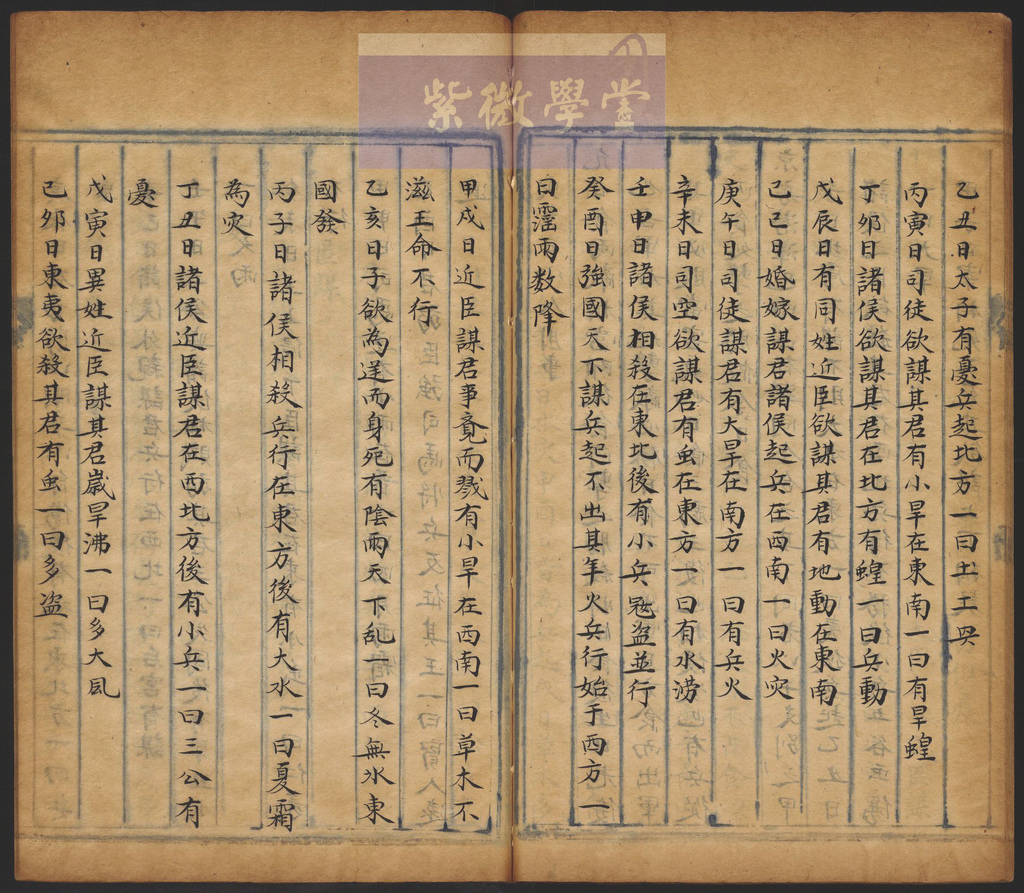 紫微學堂
乙丑日太子有憂兵起北方一曰土工興
丙寅日司徒欲謀其君有小旱在東南一曰有旱蝗
丁夘日諸侯欲謀其君在北方有蝗一曰兵動
戊辰日有同姓近臣欲謀其君有地動在東南
己巳日婚嫁謀君諸侯起兵在西南一曰火灾
庚午日司徒謀君有大旱在南方一曰有兵火
辛未日司空欲謀君有虫在東方一曰有水澇
壬申日諸侯相殺在東北後有小兵冦盗並行
癸酉日強國天下謀兵起不出其年火兵行始于西方一
曰霪雨数降
甲戌日近臣謀君事竟而戮有小旱在西南一曰草木不
滋王命不行
乙亥日子欲為逆而身死有陰雨天下乱一曰冬無氷東
國發
丙子日諸侯相殺兵行在東方後有大水一曰夏霜
為灾
丁丑日諸侯近臣謀君在西北方後有小兵一曰三公有
憂
戊寅日異姓近臣謀其君歲旱沸一曰多大風
己夘日東夷欲殺其君有虫一曰多盗